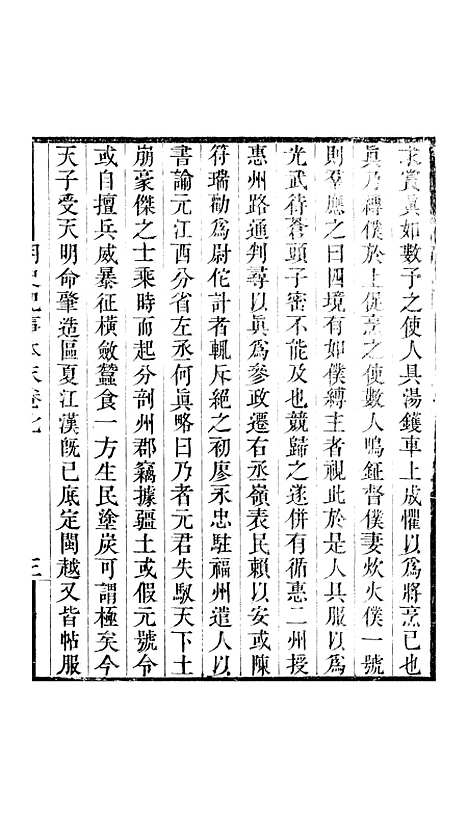 求賞眞如數予之使人具湯鑊車上成懼以爲將烹已也
眞乃縛僕於上促烹之使數人鳴鉦督僕妻炊火僕一號
則羣應之曰四境有如僕縛主者視此於是人具服以爲
光武待蒼頭子密不能及也競歸之遂併有循惠二州授
惠州路通判尋以眞爲參政遷右丞嶺表民賴以安或陳
符瑞勸爲尉佗計者輒斥絕之初廖永忠駐福州遣人以
書諭元江西分省左丞何眞略曰乃者元君失馭天下土
崩豪傑之士乘時而起分剖州郡竊據疆土或假元號令
或自擅兵威暴征橫斂蠶食一方生民塗炭可謂極矣今
天子受天明命肇造區夏江漢旣已底定閩越又皆帖服
明史紀事本末卷七 三